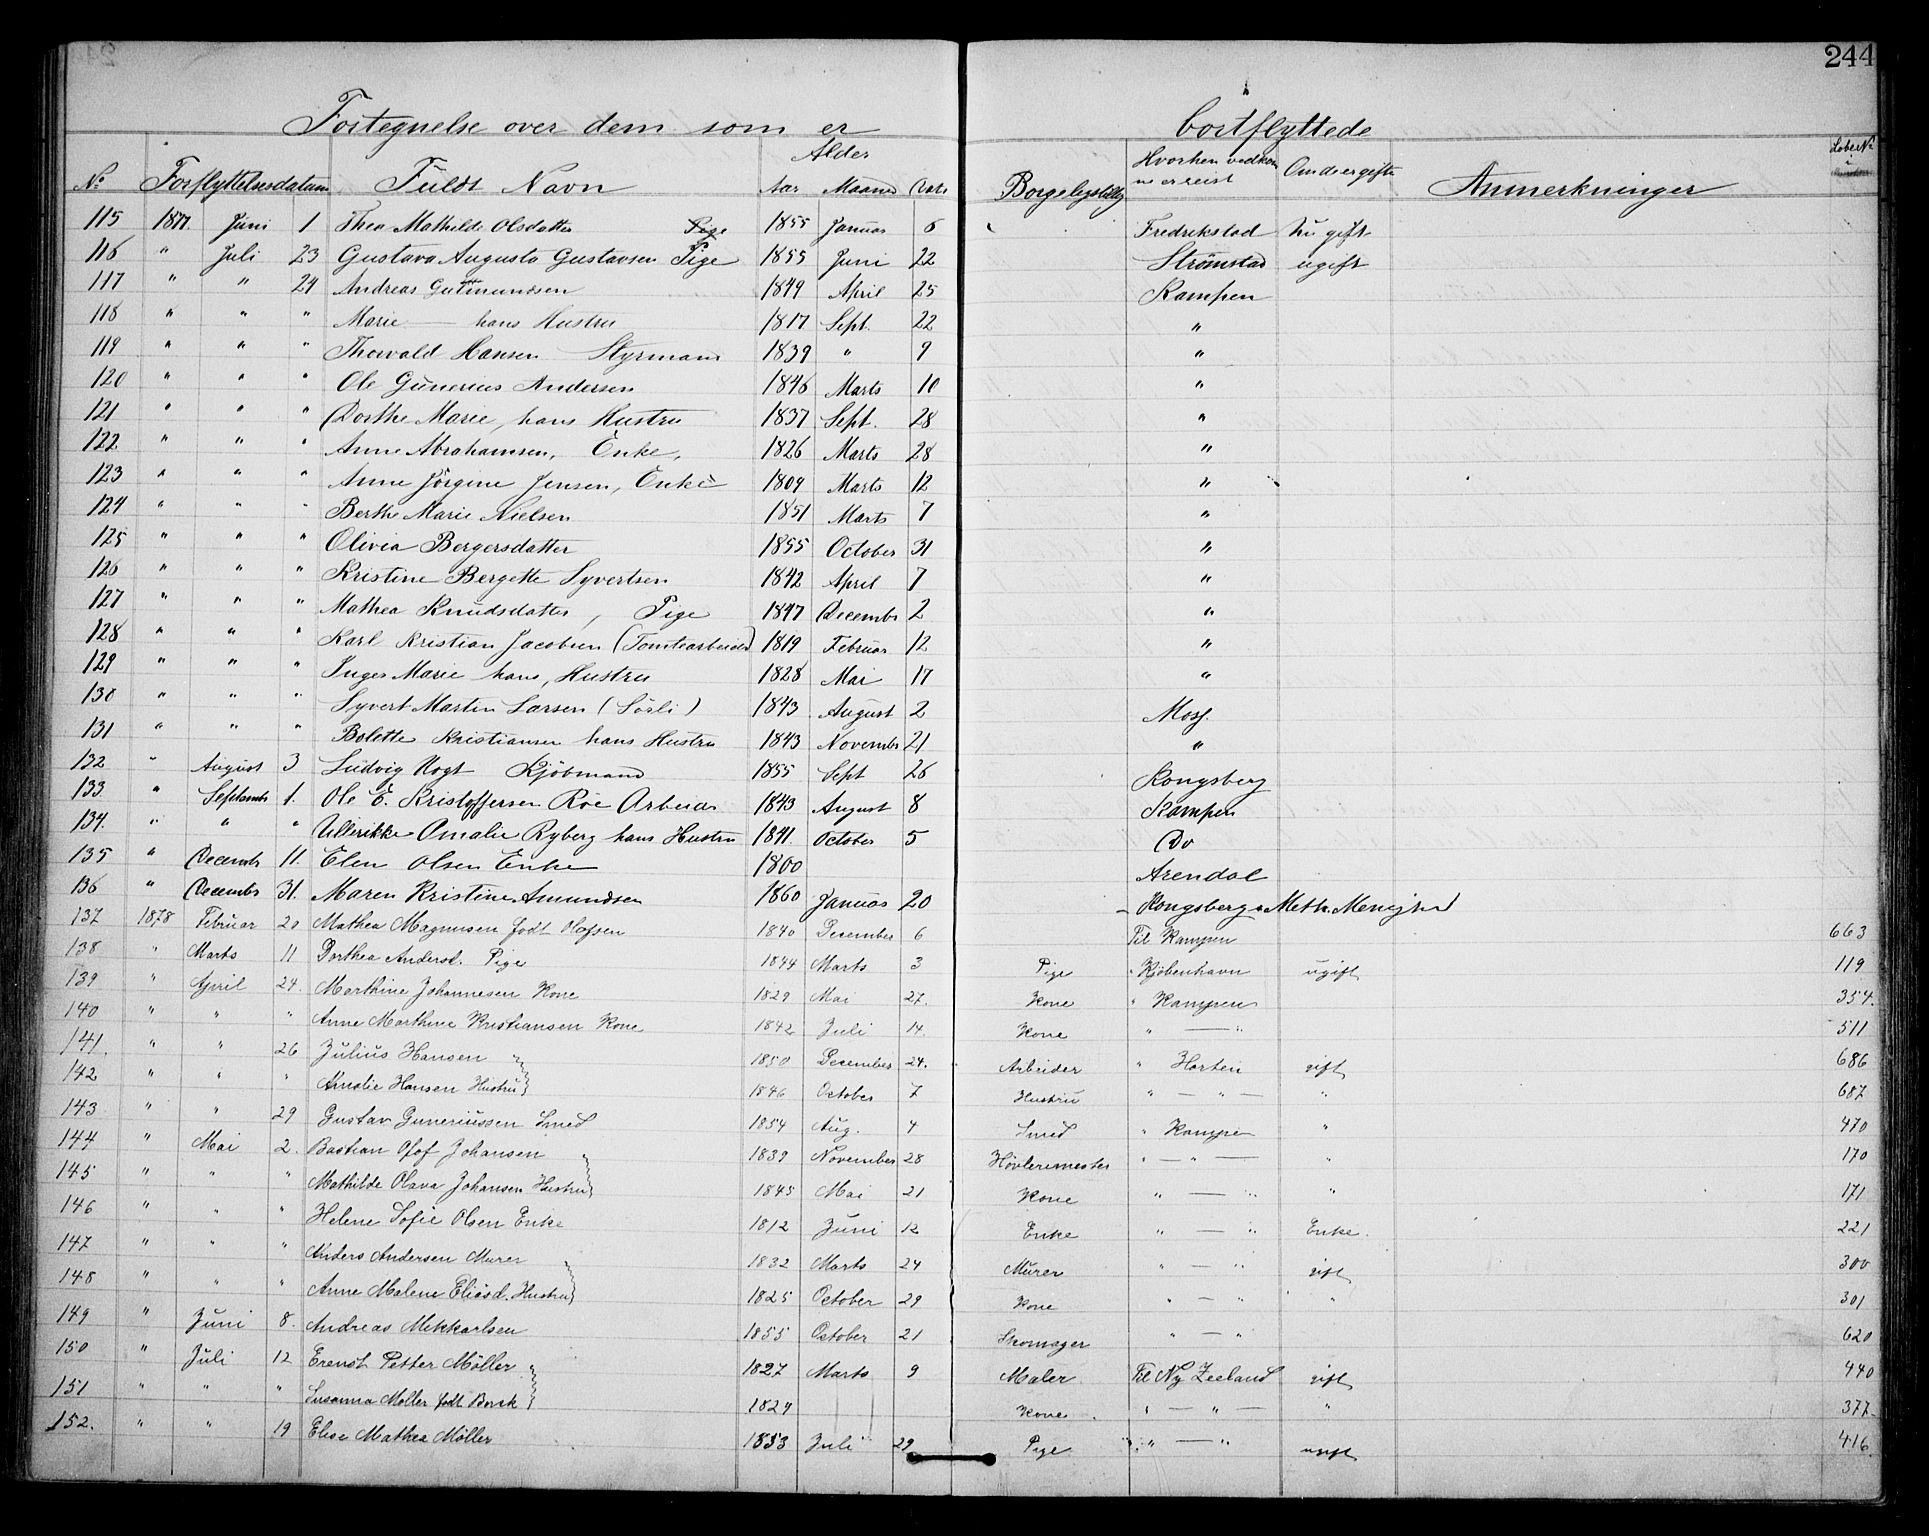 244
Fortegnelse over dem som er bortflyttede
Alder
No Forflyttelsesdatum Fuldt Navn Aar Maaned Dato Borgeligstilling Hvorhen vedkom ne er reist Om de er gifte Anmerkninger Løbe No
115 1877. Juni 1 Thea Mathilde Olsdatter Pige 1855 Januar 6 Fredrikstad ugift
116 " Juli 23 Gustava Augusta Gustavsen Pige 1855 Juni 22 Strømstad ugift
117 " " 24 Andreas Gutmundsen 1849 April 25 Kampen
118 " " " Marie — hans Hustru 1817 Sept. 22 "
119 " " " Thorvald Hansen Styrmann 1839 " 9 "
120 " " " Ole Gunerius Andersen 1846 Marts 10 "
121 " " " Dorthe Marie, hans Hustru 1837 Sept. 28 "
122 " " " Anne Abrahamsen, Enke, 1826 Marts 28 "
123 " " " Anne Jörgine Jensen, Enke 1809 Marts 12 "
124 " " " Berthe Marie Nielsen 1851 Marts 7 "
125 " " " Olivia Bergersdatter 1855 October 31 "
126 " " " Kristine Bergette Syvertsen 1842 April 7 "
127 " " " Mathea Knudsdatter, Pige 1847 Decembr 2 "
128 " " " Karl Kristian Jacobsen (Tomtearbeider) 1819 Februar 12 "
129 " " " Inger Marie hans, Hustru 1828 Mai 17 "
130 " " " Syvert Martin Larsen (Sörli) 1843 August 2 Moss.
131 " " " Bolette Kristiansen hans Hustru 1843 Novembr 21 "
132 " August 3 Ludvig Vogt Kjöbmand 1855 Sept 26 Kongsberg
133. " Septembr 1. Ole E. Kristoffersen Röe Arbeider 1843 August 8 Kampen
134. " " " Ullerikke Amalie Ryberg hans Hustru 1841. October 5 Do
135 " Decembr 11. Elen Olsen Enke 1800 Arendal
136 " Decembr 31. Maren Kristine Amundsen 1860 Januar 20 Kongsberg Meth. Menighed
137 1878 Februar 20 Mathea Magnusen født Olafsen 1840 December 6 Til Kampen 663
138 " Marts 11 Dorthea Andersd. Pige 1844 Marts 3 Pige " Kjöbenhavn ugift 119
139 " April 24. Marthine Johannesen Kone 1829 Mai 27. Kone " Kampen 354.
140 " " " Anne Marthine Kristiansen Kone 1842 Juli 14. Kone " — " 511
141. " " 26 Julius Hansen 1850 December 24. Arbeider " Horten gift 686
142 " " " Amalie Hansen Hustru 1846 October 7 Hustru " — " — " 687
143 " " 29 Gustav Guneriussen Smed 1854 Aug. 4 Smed " Kampen " 470
144 " Mai 2. Bastian Olof Johansen 1839 November 28 Hövlerimester " — " — " 170
145 " " " Mathilde Olava Johansen Hustru 1845 Mai 21 Kone " — " " 171
146 " " " Helene Sofie Olsen Enke 1812 Juni 12 Enke " — " Enke. 221
147 " " " Anders Andersen Murer 1832 Marts 24 Murer " — " gift 300
148 " " " Anne Malene Eliasd. Hustru 1825 October 29 Kone " — " " 301
149 " Juni 8. Andreas Mikkarlsen 1855 October 21 Skomager " — " 620
150 " Juli 12 Ernst Petter Möller 1827 Marts 9 Maler Til Ny Zeeland gift 440
151 " " " Susanna Møller født Borck 1829 Kone " — " — " 377.
152. " " 19 Elise Mathea Möller 1853 Juli 29 Pige " — " ugift 416